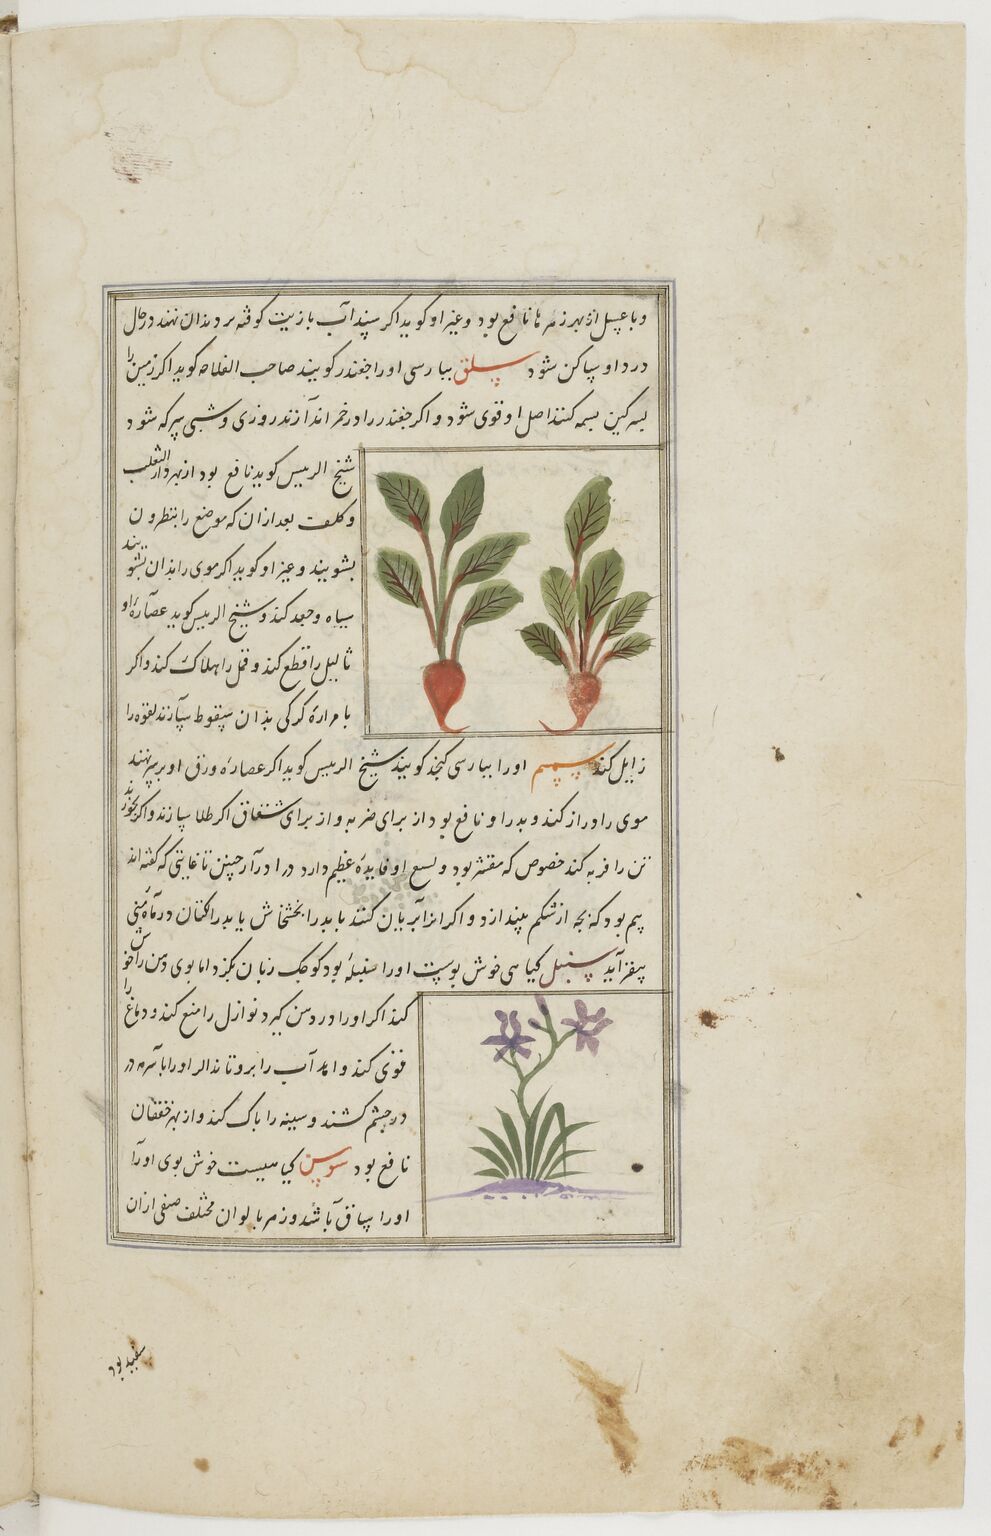 و با عسل از بهر زهرها نافع بود و غیر او کوید اکر سپید آب با زیت کوفته بر دندان نهند در حال
درد او ساکن شود سلق بپارسی او را جغندر کویند صاحب الفلاحه کوید اکر زمین را
بسرکین بسمه کنند اصل او قوی شود و اکر جغندر را در خمر اندازند روزی و شبی سرکه شود
شیخ الرییس کوید نافع بود از بهر داء الثعلب
و کلف بعد از ان که موضع را بنطرون
بشویند و غیر او کوید اکر موی را بدان بشویند
سیاه و جعد کند و شیخ الرییس کوید عصارهٔ او
ثالیل را قطع کند و قمل را هلاک کند و اکر
با مرارهٔ کرکی بدان سعوط سازند لقوه را
زایل کند سمسم او را بپارسی کنجد کویند شیخ الرییس کوید اکر عصارهٔ ورق او بر سر نهند
موی را دراز کند و بدرا و نافع بود از برای ضربه و از برای شقاق اکر طلا سازند و اکر بخورند
تن را فربه کند خصوص که مقشر بود و لسع او فایدهٔ عظیم دارد در ادرار حیض تا غایتی که کفته‌اند
بیم بود که بچه از شکم بیندازد و اکر انرا بریان کنند با بدر الخشخاش یا بدر الکتان در قاه منی
بیفزاید سنبل کیاهی خوش بوست او را سنبله بود کوجک زبان بکزد اما بوی دهن را خوش
کند اکر او را در دهن کیرد نوازل را منع کند و دماغ را
قوی کند و آب را بروتاند اکر او را با سرمه در
در جشم کشند و سینه را پاک کند و از بهر خفقان
نافع بود سوسن کیاهیست خوش بوی او را
او را ساق باشد و زهر با لوان مختلف صنفی از ان
سفید بود